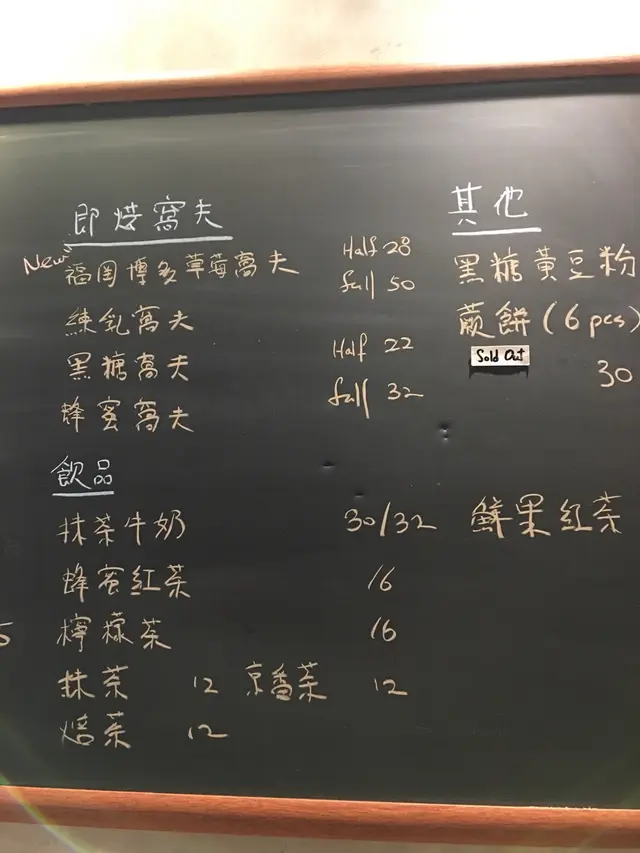 即焙窩夫
New!! 福岡博多草莓窩夫 Half 28
full 50
練乳窩夫
黑糖窩夫 Half 22
蜂蜜窩夫 full 32
其他
黑糖黃豆粉
蕨餅(6 pcs)
Sold Out
30
飲品
抹茶牛奶 30/32 鮮果紅茶
蜂蜜紅茶 16
檸檬茶 16
抹茶 12 京番茶 12
焙茶 12